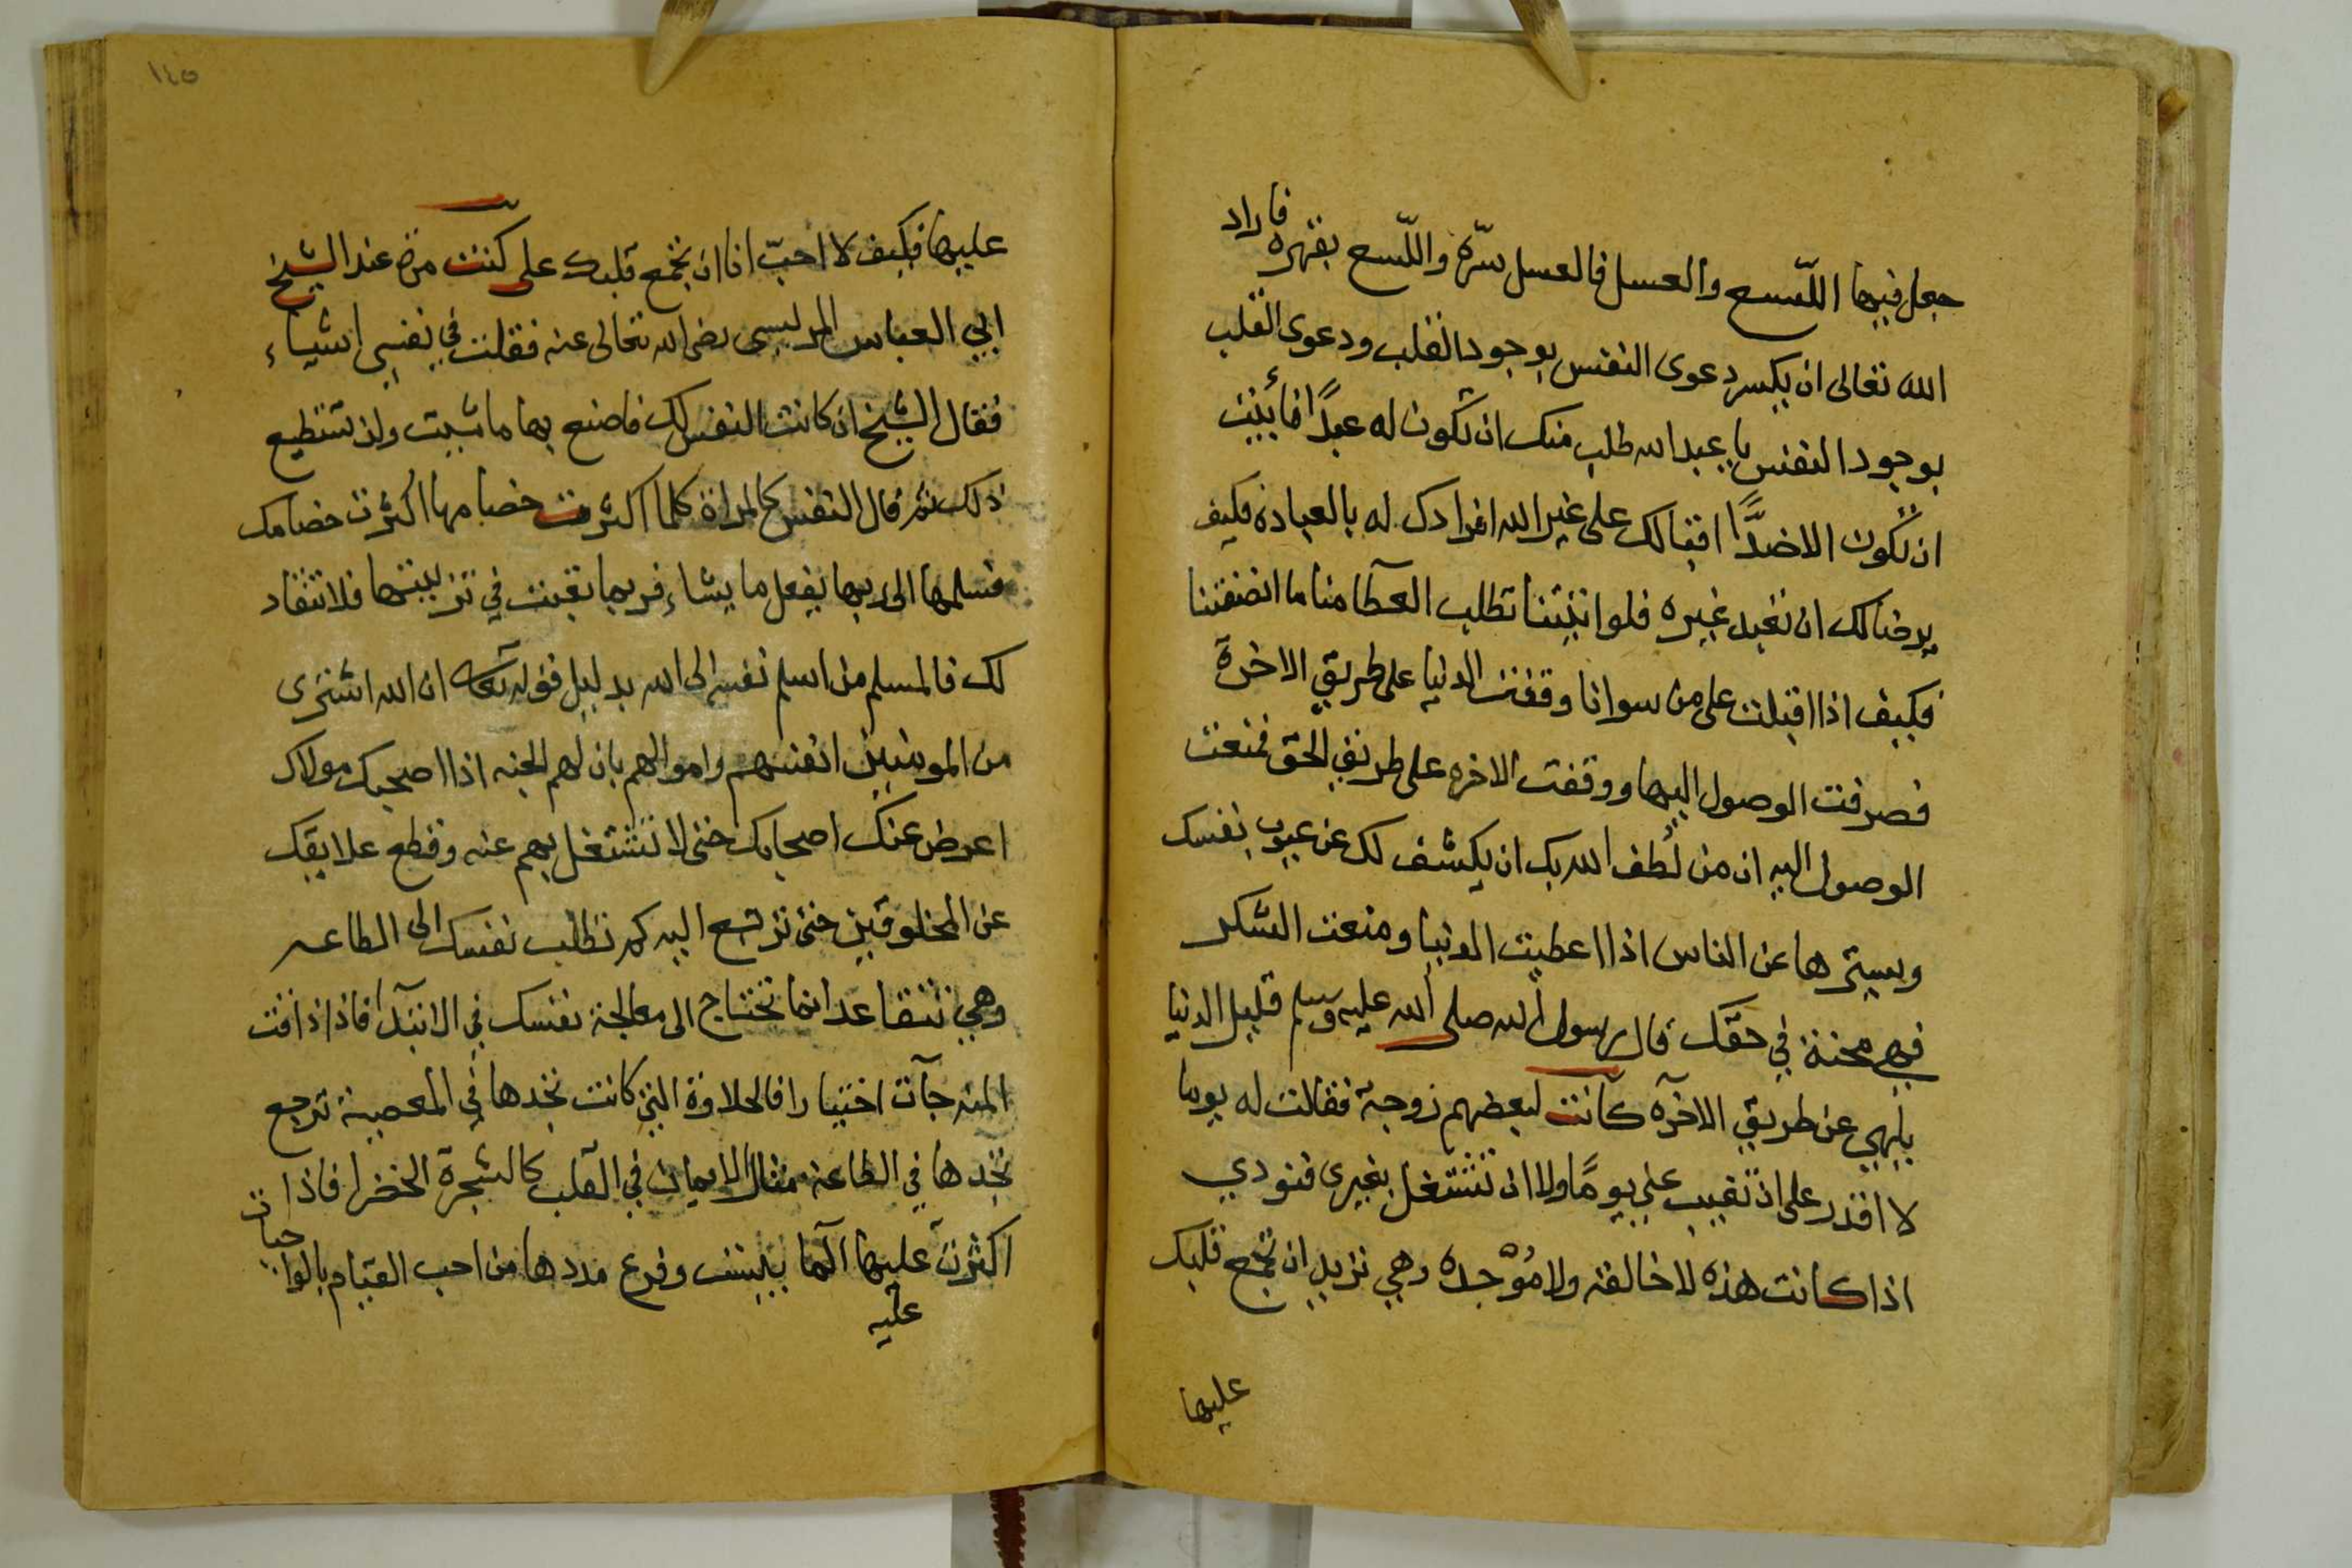 جعل فيها اللّسع والعسل فالعسل بترّه واللّسع بقهره فاراد
الله تعالى ان يكسر دعوى النفس بوجود القلب ودعوى القلب
بوجود النفس يا عبد الله طلب منك ان تكون له عبدًا فأبيت
ان تكون الا ضدًّا اقبالك على غير الله افرادك له بالعباده فكيف
يرضا لك ان تعبد غيره فلو اتيتنا تطلب العطآ منا ما انصفتنا
فكيف اذا اقبلت على من سوانا وقفت الدنيا على طريق الاخرة
فصرفت الوصول اليها ووقفت الاخره على طريق الحق فمنعت
الوصول اليه ان من لُطف الله بك ان يكشف لك عن عيوب نفسك
ويسترها عن الناس اذا اعطيت الدنيا ومنعت الشكر
فهي محنة في حقّك قال رسول الله صلى الله عليه وسلم قليل الدنيا
يلهي عن طريق الاخرآه كانت لبعضهم زوجة فقالت له يوما
لا اقدر على ان تغيب عني يومًا ولا ان تشتغل بغيرى فنودي
اذا كانت هذه لا خالقه ولا مُوْجده وهي تريد ان تجمع قلبك
عليها
١٤٥
عليها فكيف لا احبّ انا ان تجمع قلبك على كنت مرة عند الشيخ
ابي العباس المرسى رضى الله تعالى عنه فقلت في نفسي اشياء
فقال الشيخ ان كانت النفس لك فاصنع بها ما شيت ولن تستطيع
ذلك ثم قال النفس كالمراة كلما اكثرت خصامها اكثرت خصامك
فسلمها الى ربها يفعل ما يشاء فربما تعبت في تربيتها فلا تنقاد
لك فالمسلم من اسلم نفسه الى الله بدليل قوله تعالى ان الله اشترى
من المومنين انفسهم واموالهم بان لهم الجنه اذا احبك مولاك
اعرض عنك اصحابك حتى لا تشتغل بهم عنه وقطع علايقك
عن المخلوقين حتى ترجع اليه كم تطلب نفسك الى الطاعه
وهي تتقاعد انما تحتاج الى معالجة نفسك في الابتدآ فاذا ذاقت
المنه جآت اختيارا فالحلاوة التي كانت تجدها في المعصية ترجع
تجدها في الطاعة مثال الايمان في القلب كالشجرة الخضرا فاذا
اكثرت عليها الما يبست وفرغ مددها من احب القيام بالواجبات
عليه